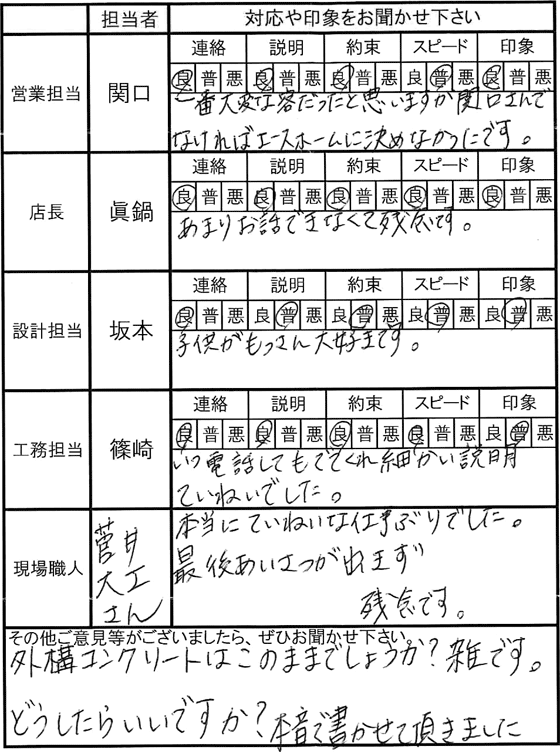 担当者 対応や印象をお聞かせ下さい
営業担当 関口
連絡 説明 約束 スピード 印象
良 普 悪 良 普 悪 良 普 悪 良 普 悪 良 普 悪
一番大変な客だったと思いますが関口さんで
なければエースホームに決めなかったです。
店長 眞鍋
連絡 説明 約束 スピード 印象
良 普 悪 良 普 悪 良 普 悪 良 普 悪 良 普 悪
あまりお話できなくて残念です。
設計担当 坂本
連絡 説明 約束 スピード 印象
良 普 悪 良 普 悪 良 普 悪 良 普 悪 良 普 悪
子供がもっさん大好きです。
工務担当 篠崎
連絡 説明 約束 スピード 印象
良 普 悪 良 普 悪 良 普 悪 良 普 悪 良 普 悪
いつ電話してもでてくれ細かい説明
ていねいでした。
現場職人
菅井
大工
さん
本当にていねいな仕事ぶりでした。
最後あいさつが出来ず
残念です。
その他ご意見等がございましたら、ぜひお聞かせ下さい。
外構コンクリートはこのままでしょうか?雑です。
どうしたらいいですか?本音で書かせて頂きました